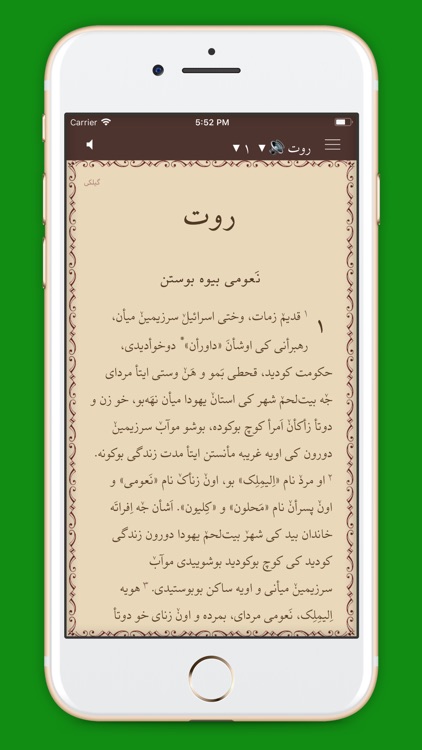 Carrier 5:52 PM
روت ▼ ۱ ▼
گیلکی
روت
نَعومی بیوه بوستن
۱
۱ قدیمˇ زمات، وختی اسرائیلˇ سرزیمینˇ میأن،
رهبرأنی کی اوشأنَ «داورأن»* دوخوأدیدی،
حکومت کودید، قحطی بَمو و هَنˇ وستی ایتأ مردای
جه بیت‌لحمˇ شهر کی استانˇ یهودا میأن نهه‌بو، خو زن و
دوتأ زأکأنˇ اَمرأ کوچ بوکوده، بوشو موآبˇ سرزیمینˇ
دورون کی اویه غریبه مأنستن ایتأ مدت زندگی بوکونه.
۲ او مردˇ نام «اِلیمِلِک» بو، اونˇ زنأکˇ نام «نَعومی» و
اونˇ پسرأنˇ نام «مَحلون» و «کِلیون». اَشأن جه اِفراتَه
خاندان بید کی شهرˇ بیت‌لحمˇ یهودا دورون زندگی
کودید کی کوچ بوکودید بوشوییدی موآبˇ
سرزیمینˇ میأنی و اویه ساکن بوبوستیدی. ۳ هویه
اِلیمِلِک، نَعومی مردای، بمرده و اونˇ زنای خو دوتأ